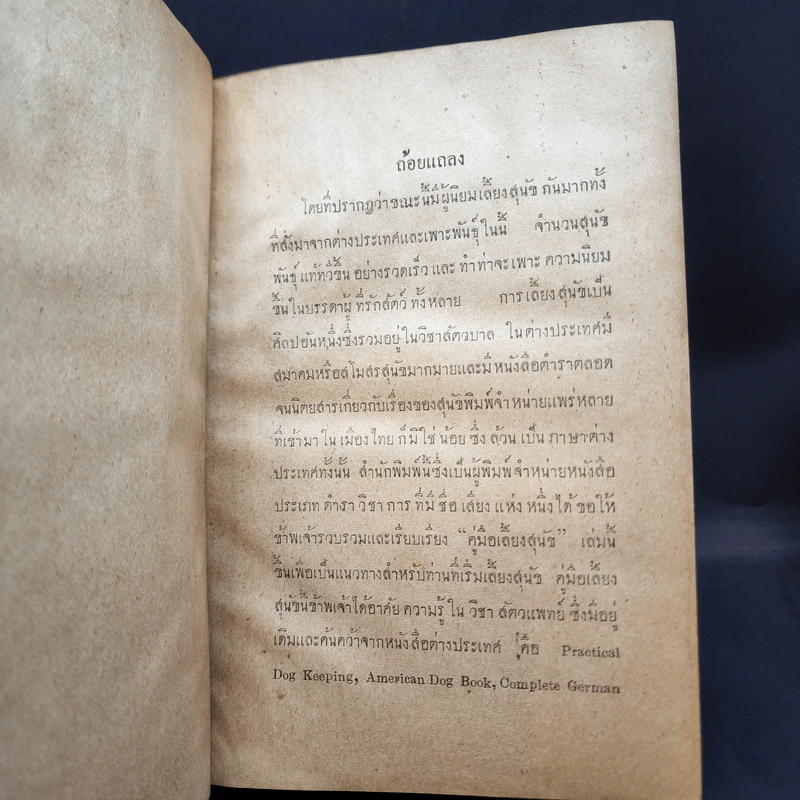 ถ้อยแถลง
โดยที่ปรากฏว่าขณะนี้มีผู้นิยมเลี้ยงสุนัข กันมากทั้ง
ที่สั่งมาจากต่างประเทศและเพาะพันธุ์ในนี้ จำนวนสุนัข
พันธุ์แท้ทวีขึ้น อย่างรวดเร็ว และ ทำท่าจะ เพาะ ความนิยม
ขึ้นในบรรดาผู้ ที่รักสัตว์ ทั้งหลาย การเลี้ยงสุนัขเป็น
ศิลปอันหนึ่งซึ่งรวมอยู่ในวิชาสัตวบาล ในต่างประเทศมี
สมาคมหรือสโมสรสุนัขมากมายและมี หนังสือตำราตลอด
จนนิตยสารเกี่ยวกับเรื่องของสุนัขพิมพ์จำหน่ายแพร่หลาย
ที่เข้ามา ใน เมืองไทย ก็มิใช่ น้อย ซึ่ง ล้วน เป็น ภาษาต่าง
ประเทศทั้งนั้น สำนักพิมพ์นี้ซึ่งเป็นผู้พิมพ์จำหน่ายหนังสือ
ประเภท ตำรา วิชา การ ที่มี ชื่อ เสียง แห่ง หนึ่ง ได้ ขอให้
ข้าพเจ้ารวบรวมและเรียบเรียง “คู่มือเลี้ยงสุนัข” เล่มนี้
ขึ้นเพื่อเป็นแนวทางสำหรับท่านที่เริ่มเลี้ยงสุนัข คู่มือเลี้ยง
สุนัขนี้ข้าพเจ้าได้อาศัย ความรู้ ใน วิชา สัตวแพทย์ ซึ่งมีอยู่
เดิมและค้นคว้าจากหนังสือต่างประเทศ คือ Practical
Dog Keeping, American Dog Book, Complete German